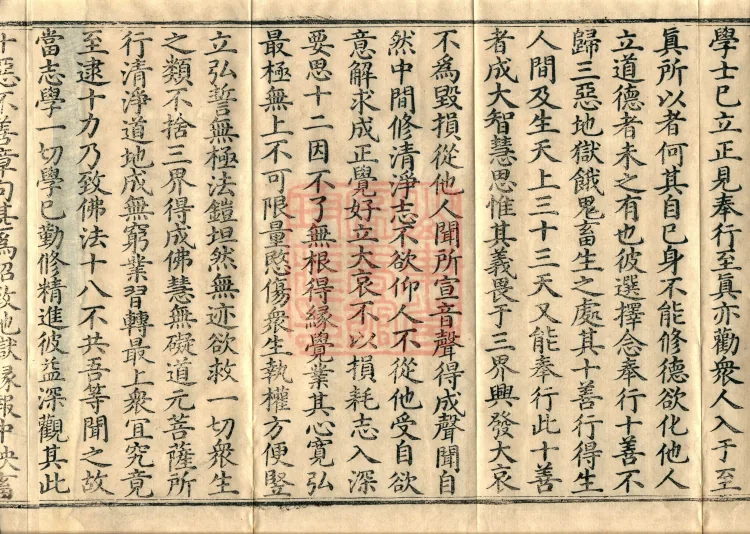 學士已立正見奉行至眞亦勸衆人入于至
眞所以者何其自已身不能修德欲化他人
立道德者未之有也彼選擇念奉行十善不
歸三惡地獄餓鬼畜生之處其十善行得生
人間及生天上三十三天又能奉行此十善
者成大智慧思惟其義畏于三界興發大哀
不爲毀損從他人聞所宣音聲得成聲聞自
然中間修清淨志不欲仰人不從他受自欲
意解求成正覺好立大哀不以損耗志入深
要思十二因不了無根得緣覺業其心寬弘
最極無上不可限量愍傷衆生執權方便豎
立弘誓無極法鎧坦然無迹欲救一切衆生
之類不捨三界得成佛慧無礙道元菩薩所
行清淨道地成無窮業習轉最上衆宜究竟
至逮十力乃致佛法十八不共吾等聞之故
當志學一切學已勤修精進彼益深觀其此
十惡不善章句甚爲招致地獄緣報中殃畜